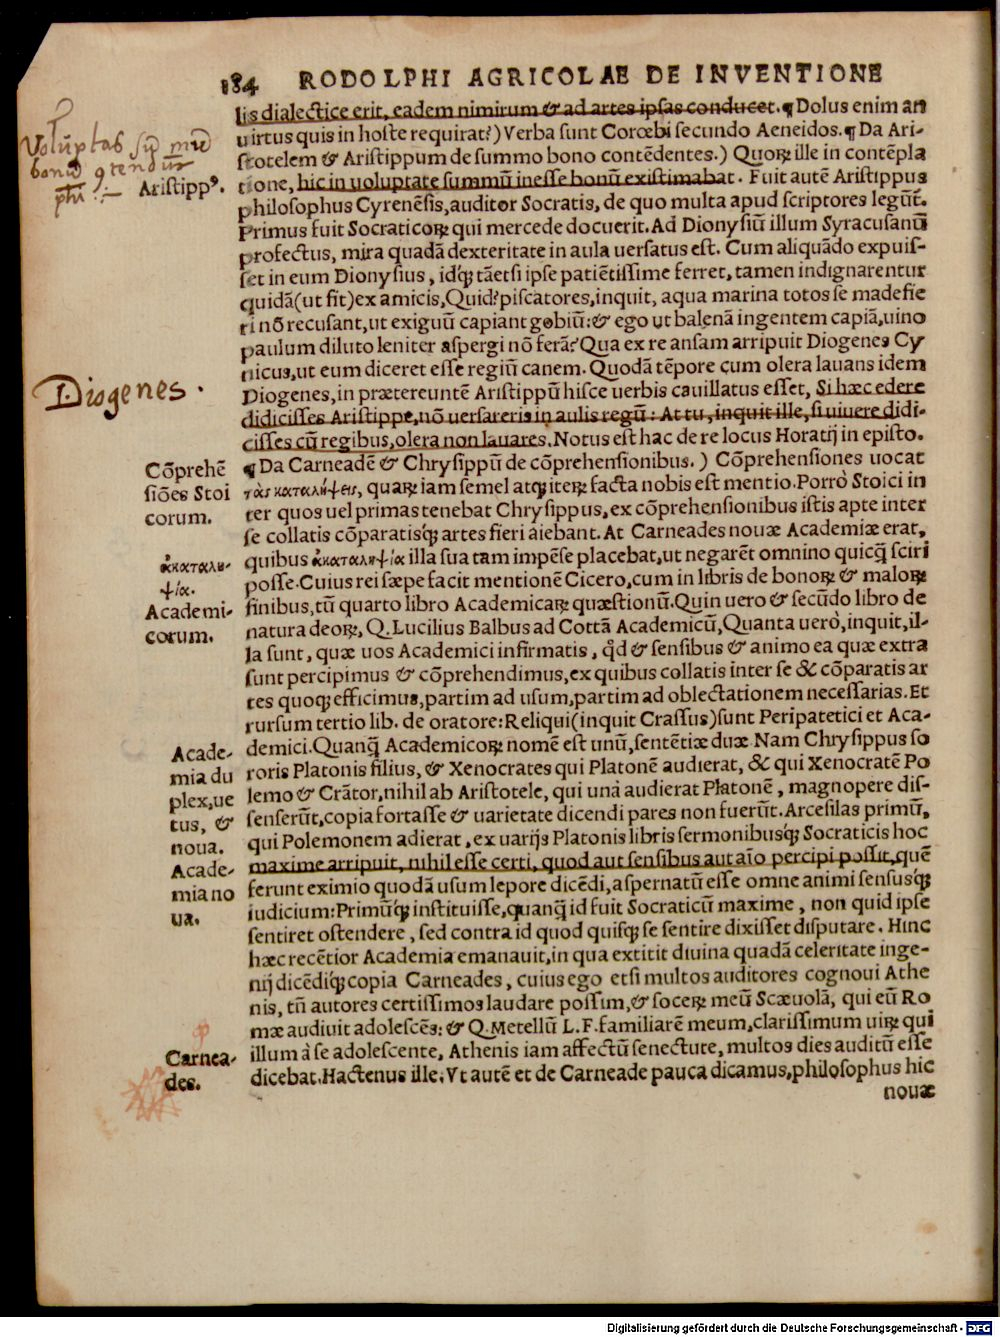 184 RODOLPHI AGRICOLAE DE INVENTIONE
lis dialectice erit, eadem nimirum & ad artes ipsas conducet. ¶ Dolus enim an
uirtus quis in hoste requirat?) Verba sunt Corœbi secundo Aeneidos. ¶ Da Ari-
stotelem & Aristippum de summo bono contēdentes.) Quorꝝ ille in contēpla
tione, hic in uoluptate summū inesse bonū existimabat. Fuit autē Aristippus
philosophus Cyrenēsis, auditor Socratis, de quo multa apud scriptores legūt.
Primus fuit Socraticoꝝ qui mercede docuerit. Ad Dionysiū illum Syracusanū
profectus, mira quadā dexteritate in aula uersatus est. Cum aliquādo expuis-
set in eum Dionysius, idq̃ʒ tāetsi ipse patiētissime ferret, tamen indignarentur
quidā(ut fit)ex amicis, Quid? piscatores, inquit, aqua marina totos se madefie
ri nō recusant, ut exiguū capiant gobiū: & ego ut balenā ingentem capiā, uino
paulum diluto leniter aspergi nō ferā? Qua ex re ansam arripuit Diogenes Cy
nicus, ut eum diceret esse regiū canem. Quodā tēpore cum olera lauans idem
Diogenes, in prætereuntē Aristippū hisce uerbis cauillatus esset, Si hæc edere
didicisses Aristippe, nō uersareris in aulis regū: At tu, inquit ille, si uiuere didi-
cisses cū regibus, olera non lauares. Notus est hac de re locus Horatij in episto.
¶ Da Carneadē & Chrysippū de cōprehensionibus.) Cōprehensiones uocat
τὰς καταλήψεις, quaꝝ iam semel atqʒ iteꝝ facta nobis est mentio. Porrò Stoici in
ter quos uel primas tenebat Chrysippus, ex cōprehensionibus istis apte inter
se collatis cōparatisq̃ʒ artes fieri aiebant. At Carneades nouæ Academiæ erat,
quibus ἀκαταληψία illa sua tam impēse placebat, ut negarēt omnino quicq̃ sciri
posse. Cuius rei sæpe facit mentionē Cicero, cum in libris de bonoꝝ & maloꝝ
finibus, tū quarto libro Academicaꝝ quæstionū. Quin uero & secūdo libro de
natura deoꝝ, Q. Lucilius Balbus ad Cottā Academicū, Quanta uerò, inquit, il-
la sunt, quæ uos Academici infirmatis, q̃d & sensibus & animo ea quæ extra
sunt percipimus & cōprehendimus, ex quibus collatis inter se & cōparatis ar
tes quoqʒ efficimus, partim ad usum, partim ad oblectationem necessarias. Et
rursum tertio lib. de oratore: Reliqui(inquit Crassus)sunt Peripatetici et Aca-
demici. Quanq̃ Academicoꝝ nomē est unū, sentētiæ duæ Nam Chrysippus so
roris Platonis filius, & Xenocrates qui Platonē audierat, & qui Xenocratē Po
lemo & Crātor, nihil ab Aristotele, qui unà audierat Platonē, magnopere dis-
senserūt, copia fortasse & uarietate dicendi pares non fuerūt. Arcesilas primū,
qui Polemonem adierat, ex uarijs Platonis libris sermonibusq̃ʒ Socraticis hoc
maxime arripuit, nihil esse certi, quod aut sensibus aut aīo percipi possit, quē
ferunt eximio quodā usum lepore dicēdi, aspernatū esse omne animi sensusq̃ʒ
iudicium: Primūq̃ʒ instituisse, quanq̃ id fuit Socraticū maxime, non quid ipse
sentiret ostendere, sed contra id quod quisqʒ se sentire dixisset disputare. Hinc
hæc recētior Academia emanauit, in qua extitit diuina quadā celeritate inge-
nij dicēdiq̃ʒ copia Carneades, cuius ego etsi multos auditores cognoui Athe
nis, tñ autores certissimos laudare possim, & soceꝝ meū Scæuolā, qui eū Ro
mæ audiuit adolescēs: & Q. Metellū L. F. familiarē meum, clarissimum uiꝝ qui
illum à se adolescente, Athenis iam affectū senectute, multos dies auditū esse
dicebat. Hactenus ille. Vt autē et de Carneade pauca dicamus, philosophus hic
nouæ
Voluptas
Aristippꝰ.
Diogenes.
Cōprehē
siōes Stoi
corum.
ἀκαταλη-
ψία.
Academi-
corum.
Acade-
mia du
plex, ue
tus, &
noua.
Acade-
mia no
ua.
Carnea-
des.
Digitalisierung gefördert durch die Deutsche Forschungsgemeinschaft - DFG